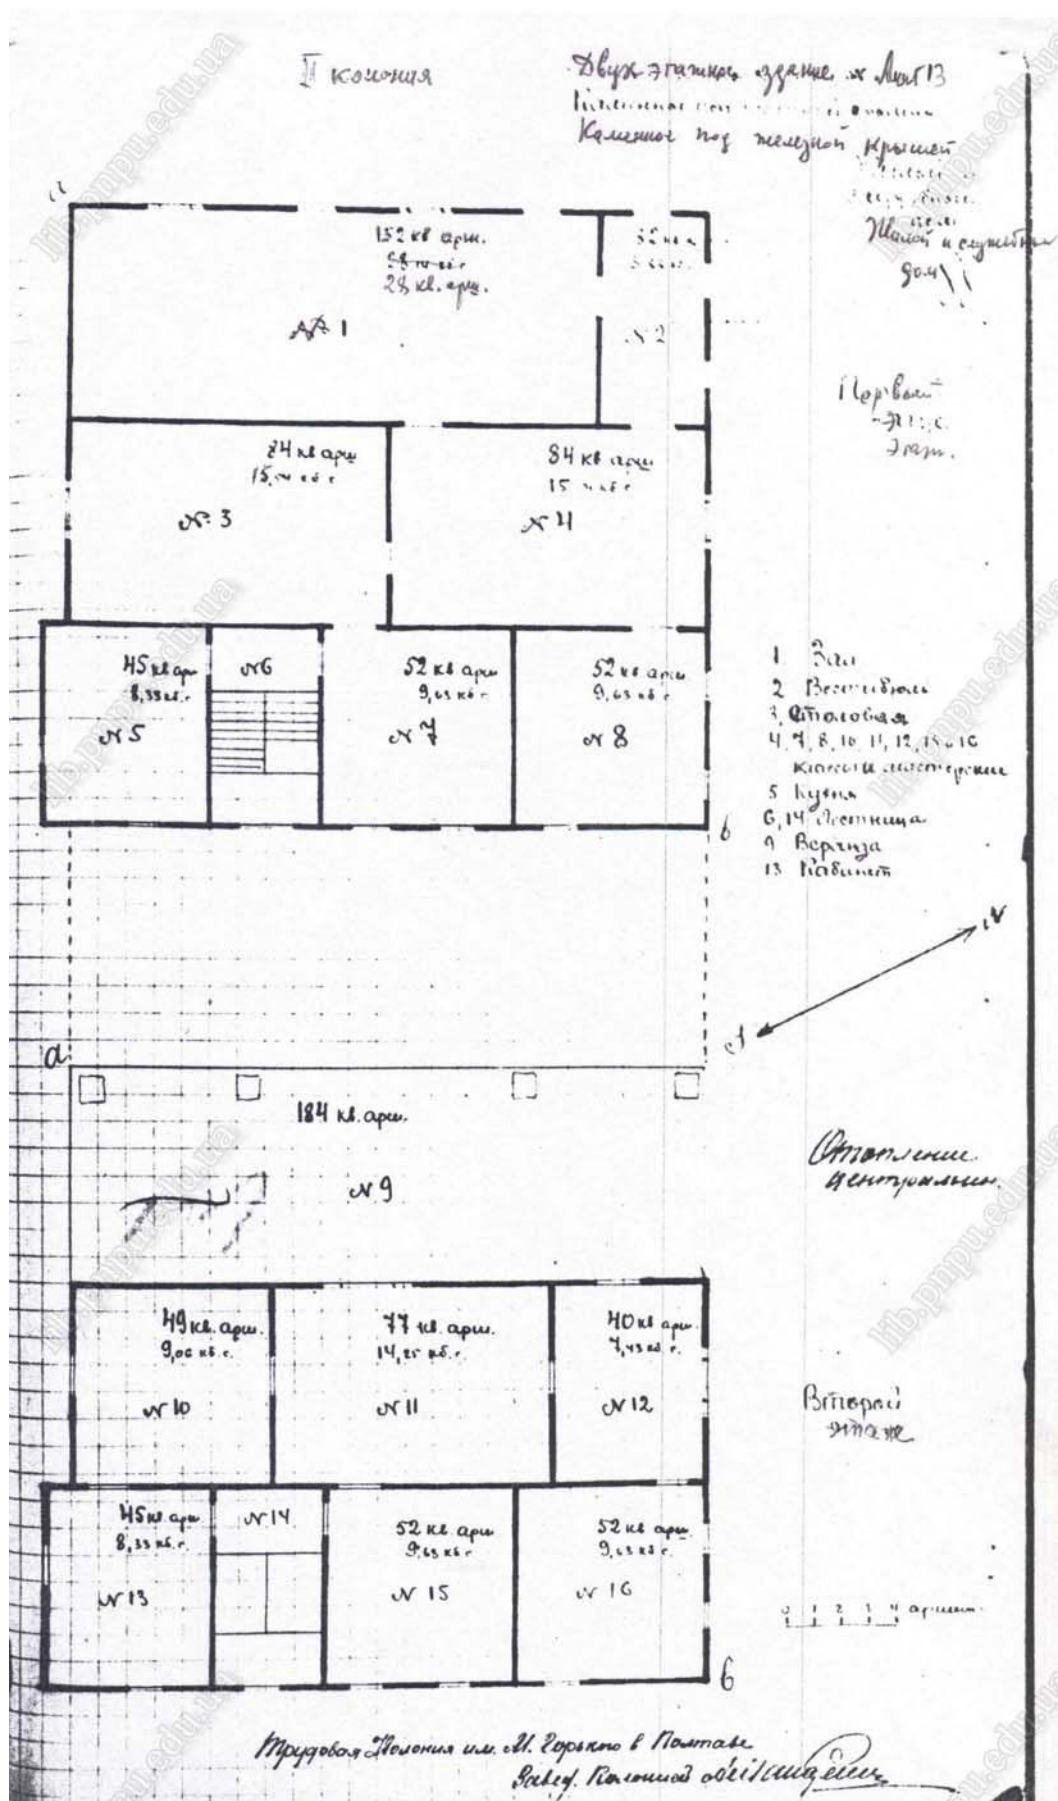 II колония
Двух этажное здание
Каменное под железной крышей
Жилой и служебный
дом
152 кв арш.
28 кв. арш.
№ 1
№ 2
Первый
Этаж.
84 кв арш
№ 3
84 кв арш
15
№ 4
45 кв арш
8,33 кб. с.
№ 5
№ 6
52 кв арш
9,63 кб с
№ 7
52 кв арш
9,63 кб с
№ 8
б
1 Зал
2 Вестибюль
3, Столовая
4, 7, 8, 10, 11, 12, 15 и 16
классы и мастерские
5 Кухня
6, 14 Лестница
9 Веранда
13 Кабинет
N
а
184 кв. арш.
№ 9
Отопление
центральн.
49 кв. арш.
9,06 кб. с.
№ 10
77 кв. арш.
14,25 кб. с
№ 11
40 кв арш.
7,43 кб. с.
№ 12
Второй
этаж
45 кв. арш
8,33 кб. с.
№ 13
№ 14
52 кв. арш
9,63 кб с
№ 15
52 кв арш.
9,63 кб с.
№ 16
0 1 2 3 4 аршин
б
Трудовая Колония им. М. Горького в Полтаве
Завед. Колонией
lib.pnpu.edu.ua